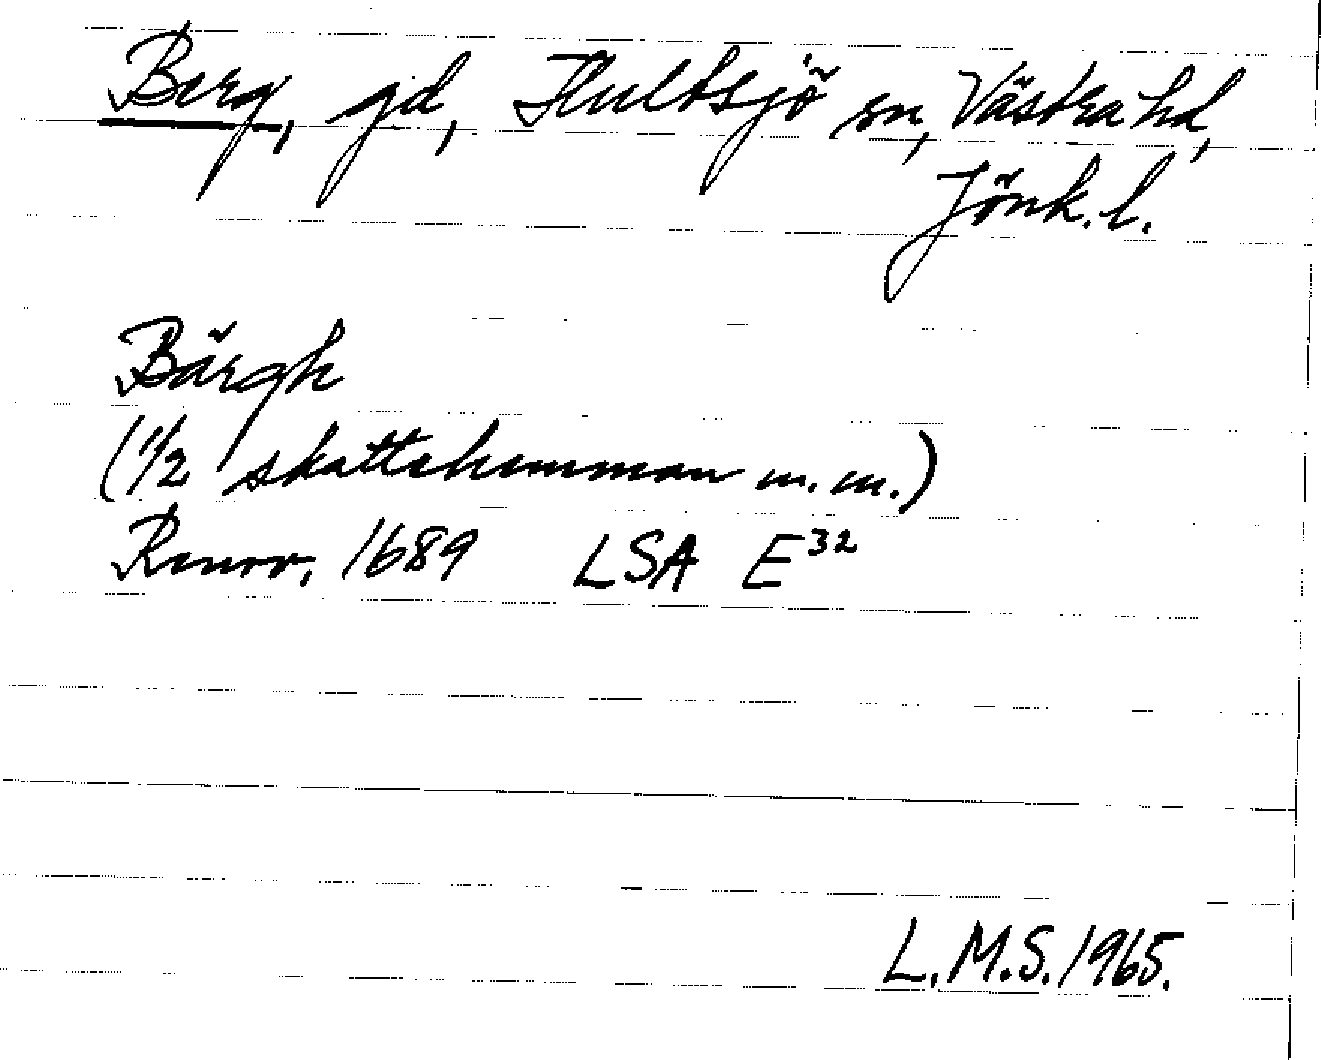 Berg, gd, Hultsjö sn, Västra hd,
Jönk. l.
Bärgh
(1/2 skattehemman m. m.)
Renov. 1689 LSA E32
L.M.S. 1965.